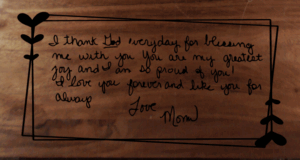 I thank God everyday for blessing
me with you You are my greatest
joy and I am so proud of you!
I love you forever and like you for
always
Love
Mom